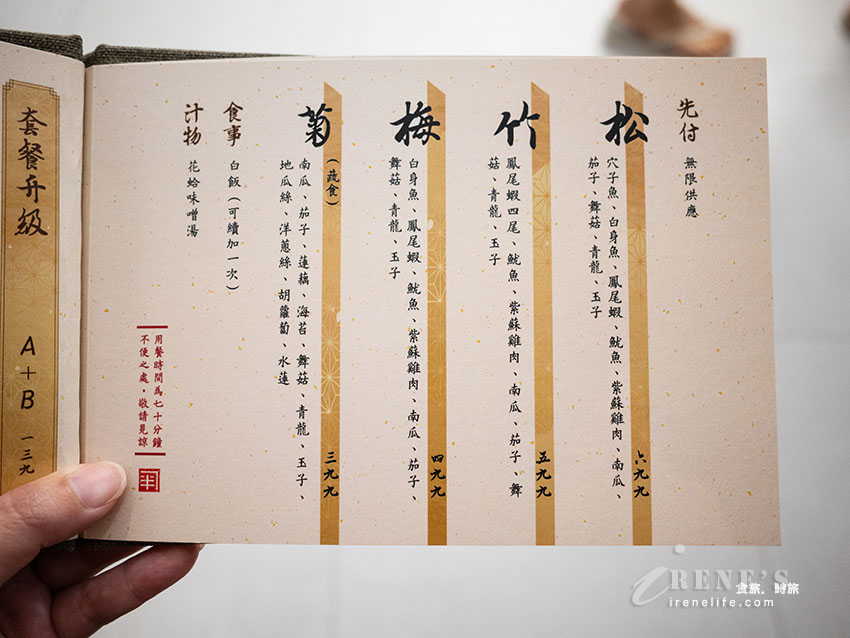 先付
無限供應
松
穴子魚、白身魚、鳳尾蝦、魷魚、紫蘇雞肉、南瓜、
茄子、舞菇、青龍、玉子
六九九
竹
鳳尾蝦四尾、魷魚、紫蘇雞肉、南瓜、茄子、舞
菇、青龍、玉子
五九九
梅
白身魚、鳳尾蝦、魷魚、紫蘇雞肉、南瓜、茄子、
舞菇、青龍、玉子
四九九
菊
(蔬食)
南瓜、茄子、蓮藕、海苔、舞菇、青龍、玉子、
地瓜絲、洋蔥絲、胡蘿蔔、水蓮
三九九
食事
白飯(可續加一次)
汁物
花蛤味噌湯
用餐時間為七十分鐘
不便之處,敬請見諒
半
套餐升級
A+B
一三九
iRENE'S
食旅。時旅
irenelife.com